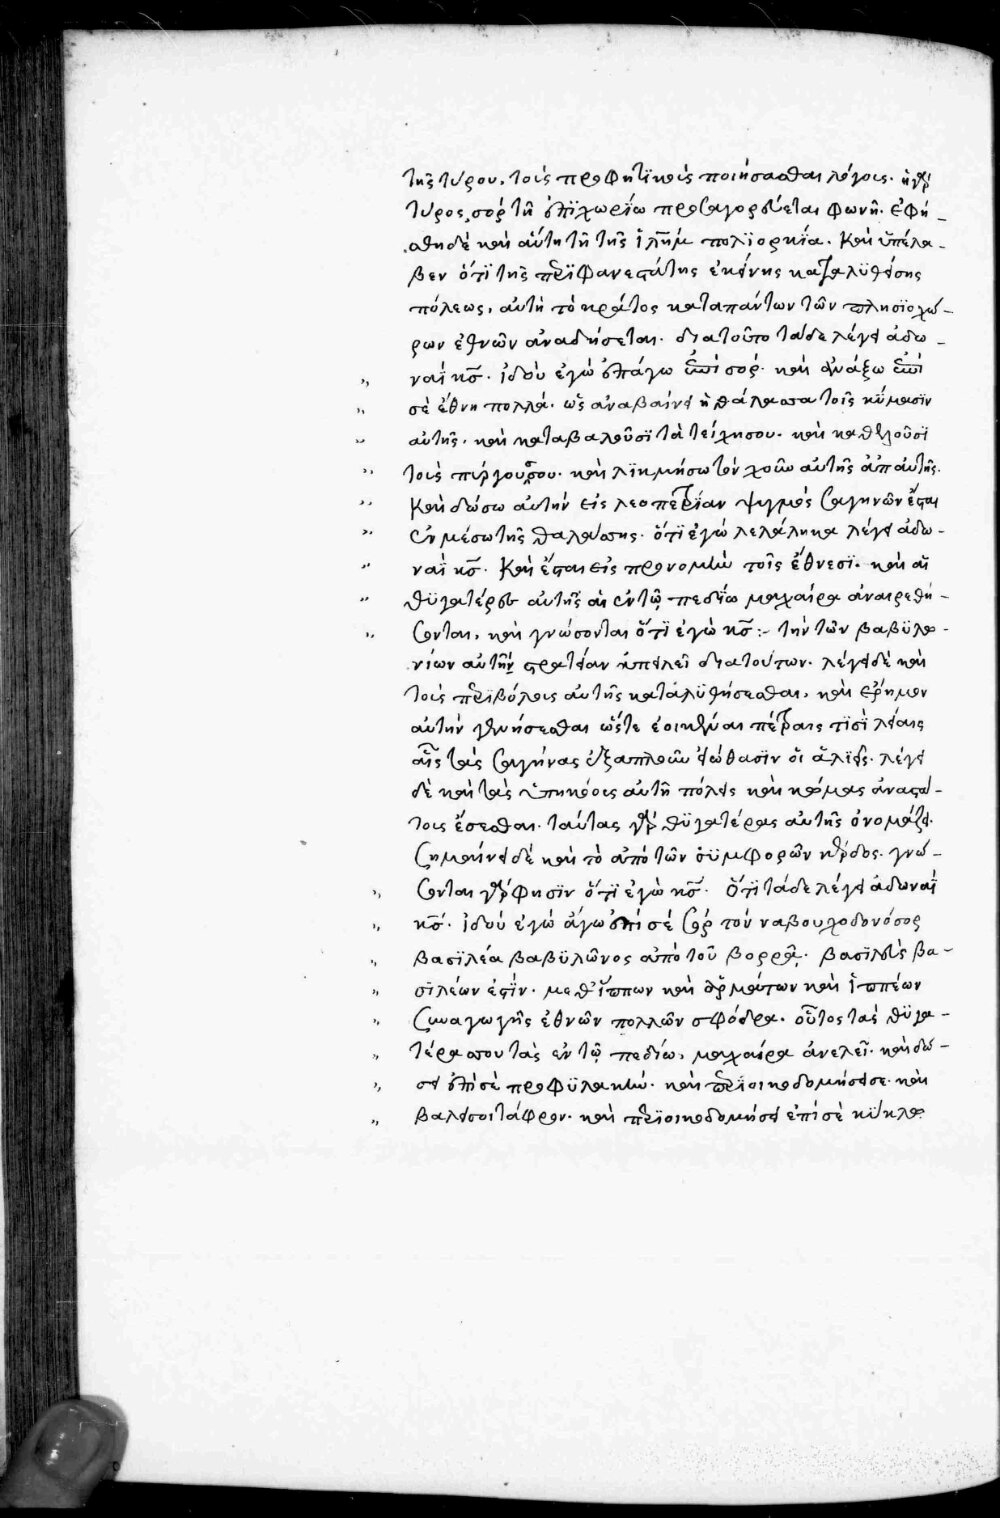 τῆς τύρου, τοὺς προφητικοὺς ποιήσασθαι λόγους· ἡ γὰρ
τύρος, σὸρ τῆ ἐπϊχωρΐω προσαγορεύεται φωνῆ· ἐφή-
σθη δὲ καὶ αὕτη τῆ τῆς ἱλημ πολϊορκΐα· Καὶ ὑπέλα-
βεν ὅτϊ τῆς περϊφανεστάτης ἐκείνης καταλϋθείσης
πόλεως, αὐτὴ τὸ κράτος κατα πάντων τῶν πλησϊοχώ-
ρων ἐθνῶν ἀναδήσεται· δια τοῦτο τάδε λέγει ἀδω-
,, ναῒ κς· ἰδοὺ ἐγὼ ἐπάγω ἐπὶ σόρ· καὶ ἀνάξω ἐπὶ
,, σὲ ἔθνη πολλά· ὡς ἀναβαίνει ἡ θάλασσα τοῖς κύμασϊν
,, αὐτῆς· καὶ καταβαλοῦσϊ τὰ τείχη σου· καὶ καθελοῦσϊ
,, τοὺς πύργους σου· καὶ λϊκμήσω τὸν χοῦν αὐτῆς ἀπ αὐτῆς·
,, Καὶ δώσω αὐτὴν εἰς λεοπετρΐαν ψυγμὸς σαγηνῶν ἔσται
,, ἐν μέσω τῆς θαλάσσης· ὅτϊ ἐγὼ λελάληκα λέγει ἀδω-
,, ναῒ κς· Καὶ ἔσται εἰς προνομὴν τοῖς ἔθνεσϊ· καὶ αἱ
,, θϋγατέρες αὐτῆς αἱ ἐν τῷ πεδΐω μαχαίρα ἀναιρεθή-
,, σονται, καὶ γνώσονται ὅτϊ ἐγὼ κς :- τὴν τῶν βαβϋλω-
νίων αὐτῇ στρατείαν ἀπειλεῖ δια τούτων· λέγει δὲ καὶ
τοὺς περϊβόλους αὐτῆς καταλϋθήσεσθαι, καὶ ἔρημον
αὐτὴν γενήσεσθαι ὥστε ἐοικέναι πέτραις τϊσὶ λείαις
αἷς τὰς σαγήνας ἐξαπλοῦν εἰώθασϊν οἱ ἁλϊεῖς· λέγει
δὲ καὶ τὰς ὑπηκόους αὐτῆ πόλεις καὶ κώμας ἀναστά-
τους ἔσεσθαι· ταύτας γὰρ θϋγατέρας αὐτῆς ὀνομάζει·
Σημαίνει δὲ καὶ τὸ ἀπὸ τῶν σϋμφορῶν κέρδος· γνώ-
,, σονται γάρ φησϊν ὅτϊ ἐγὼ κς· Ὅτϊ τάδε λέγει ἀδωναῒ
,, κς· ἰδοὺ ἐγὼ ἄγω ἐπὶ σὲ σὸρ τὸν ναβουχοδονόσορ
,, βασϊλέα βαβϋλῶνος ἀπὸ τοῦ βορρᾶ· βασϊλεὺς βα-
,, σϊλέων ἐστΐν· μεθ ἵππων καὶ ἁρμάτων καὶ ἱππέων
,, Συναγωγῆς ἐθνῶν πολλῶν σφόδρα· οὗτος τὰς θϋγα-
,, τέρας σου τὰς ἐν τῷ πεδίω, μαχαίρα ἀνελεῖ· καὶ δώ-
,, σει ἐπὶ σὲ προφϋλακὴν· καὶ περϊοικοδομήσει σε· καὶ
,, βαλεῖ σοι τάφρον· καὶ περϊοικοδομήσει ἐπὶ σὲ κύκλω